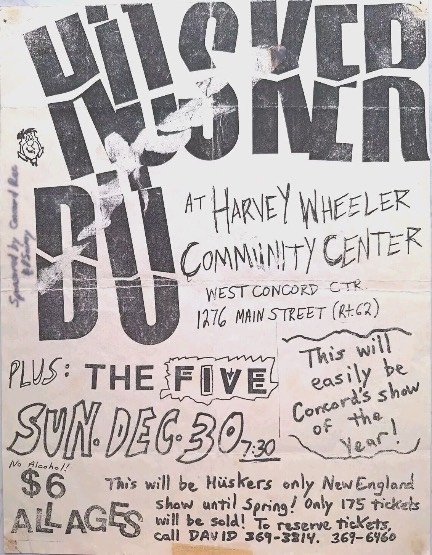 HÜSKER
DÜ
AT HARVEY WHEELER
COMMUNITY CENTER
WEST CONCORD CTR.
1276 MAIN STREET (Rt. 62)
Sponsored by Concord Rec
PLUS: THE FIVE
SUN. DEC. 30 7:30
This will
easily be
Concord's show
of the
Year!
No Alcohol!
$6
ALL AGES
This will be Hüskers only New England
show until Spring! Only 175 tickets
will be sold! To reserve tickets,
call DAVID 369-3814. 369-6960